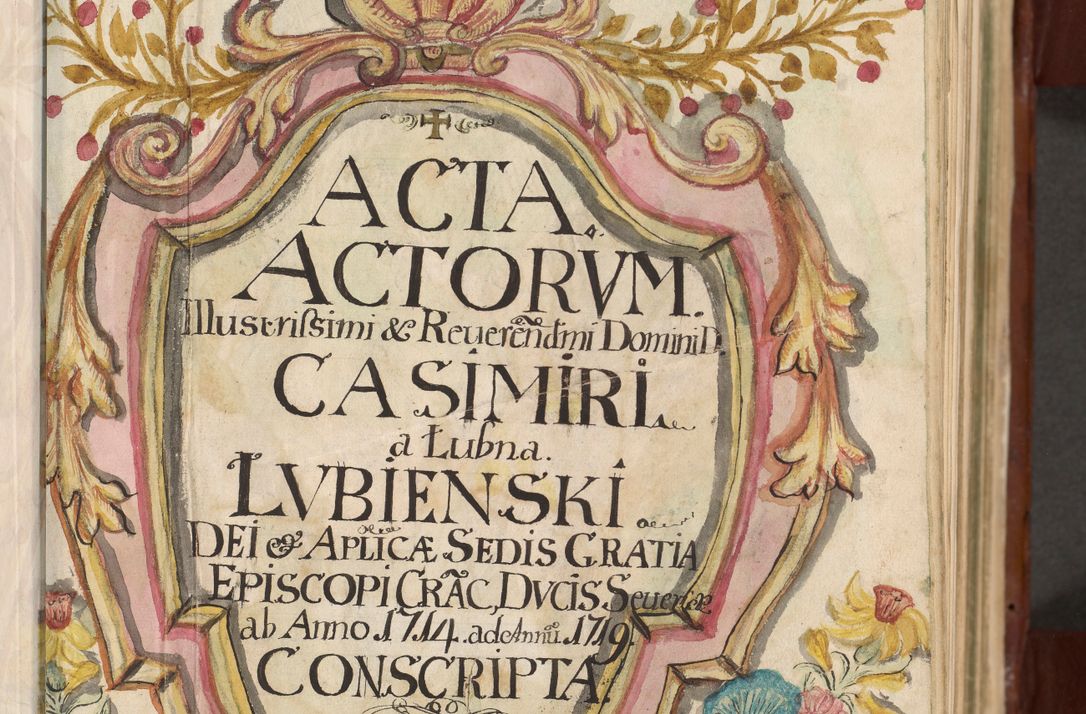 ACTA.
ACTORVM.
Illustrissimi & Reuerẽndmi Domini D.
CASIMIRI
a Łubna.
LVBIENSKI
DEI & APLICÆ SEDIS GRATIA
EPISCOPI CRÃC, DVCIS Seueriæ
ab Anno 1714. ad Annũ 1719.
CONSCRIPTA.